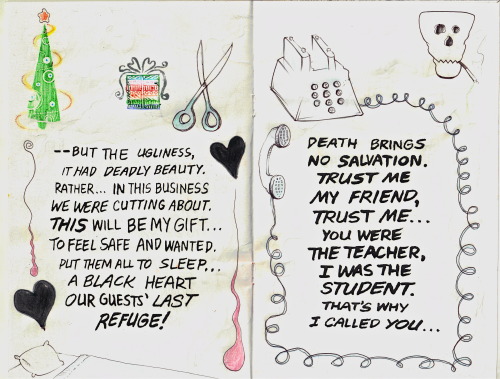 --BUT THE UGLINESS,
IT HAD DEADLY BEAUTY.
RATHER... IN THIS BUSINESS
WE WERE CUTTING ABOUT.
THIS WILL BE MY GIFT...
TO FEEL SAFE AND WANTED.
PUT THEM ALL TO SLEEP...
A BLACK HEART
OUR GUESTS' LAST
REFUGE!
DEATH BRINGS
NO SALVATION.
TRUST ME
MY FRIEND,
TRUST ME...
YOU WERE
THE TEACHER,
I WAS THE
STUDENT.
THAT'S WHY
I CALLED YOU...